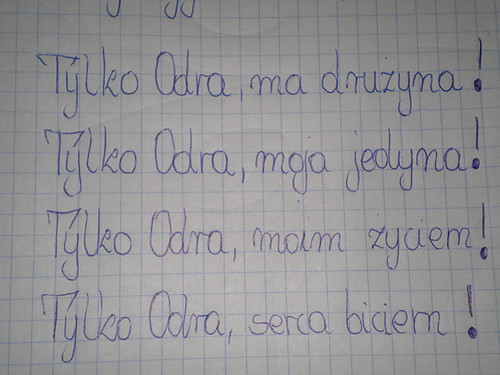 Tylko Odra, ma drużyna!
Tylko Odra, moja jedyna!
Tylko Odra, moim życiem!
Tylko Odra, serca biciem!